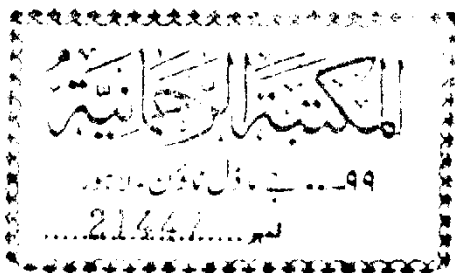 المكتبة الرحمانية
۹۹... جے ماڈل ٹاؤن ـ لاہور
نمبر.....21447.....